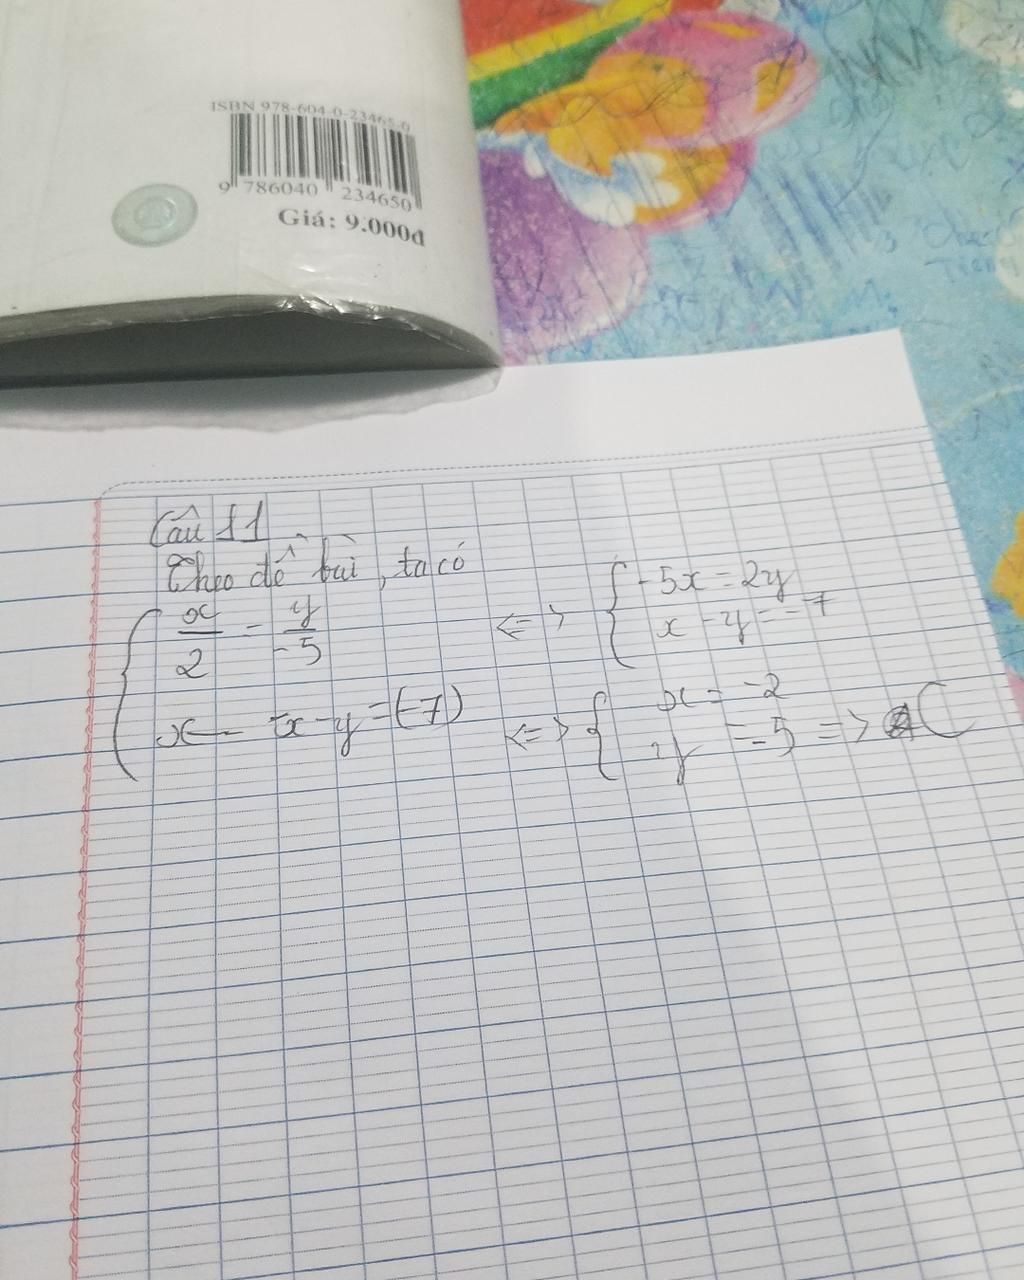 ISBN 978-604-0-23465-0
9 786040 234650
Giá: 9.000đ
Câu 11
Theo đề bài, ta có
x/2 = y/-5 <=> { -5x = 2y
x - y = -7
x - x - y = (-7) <=> { x = -2
y = 5 => C